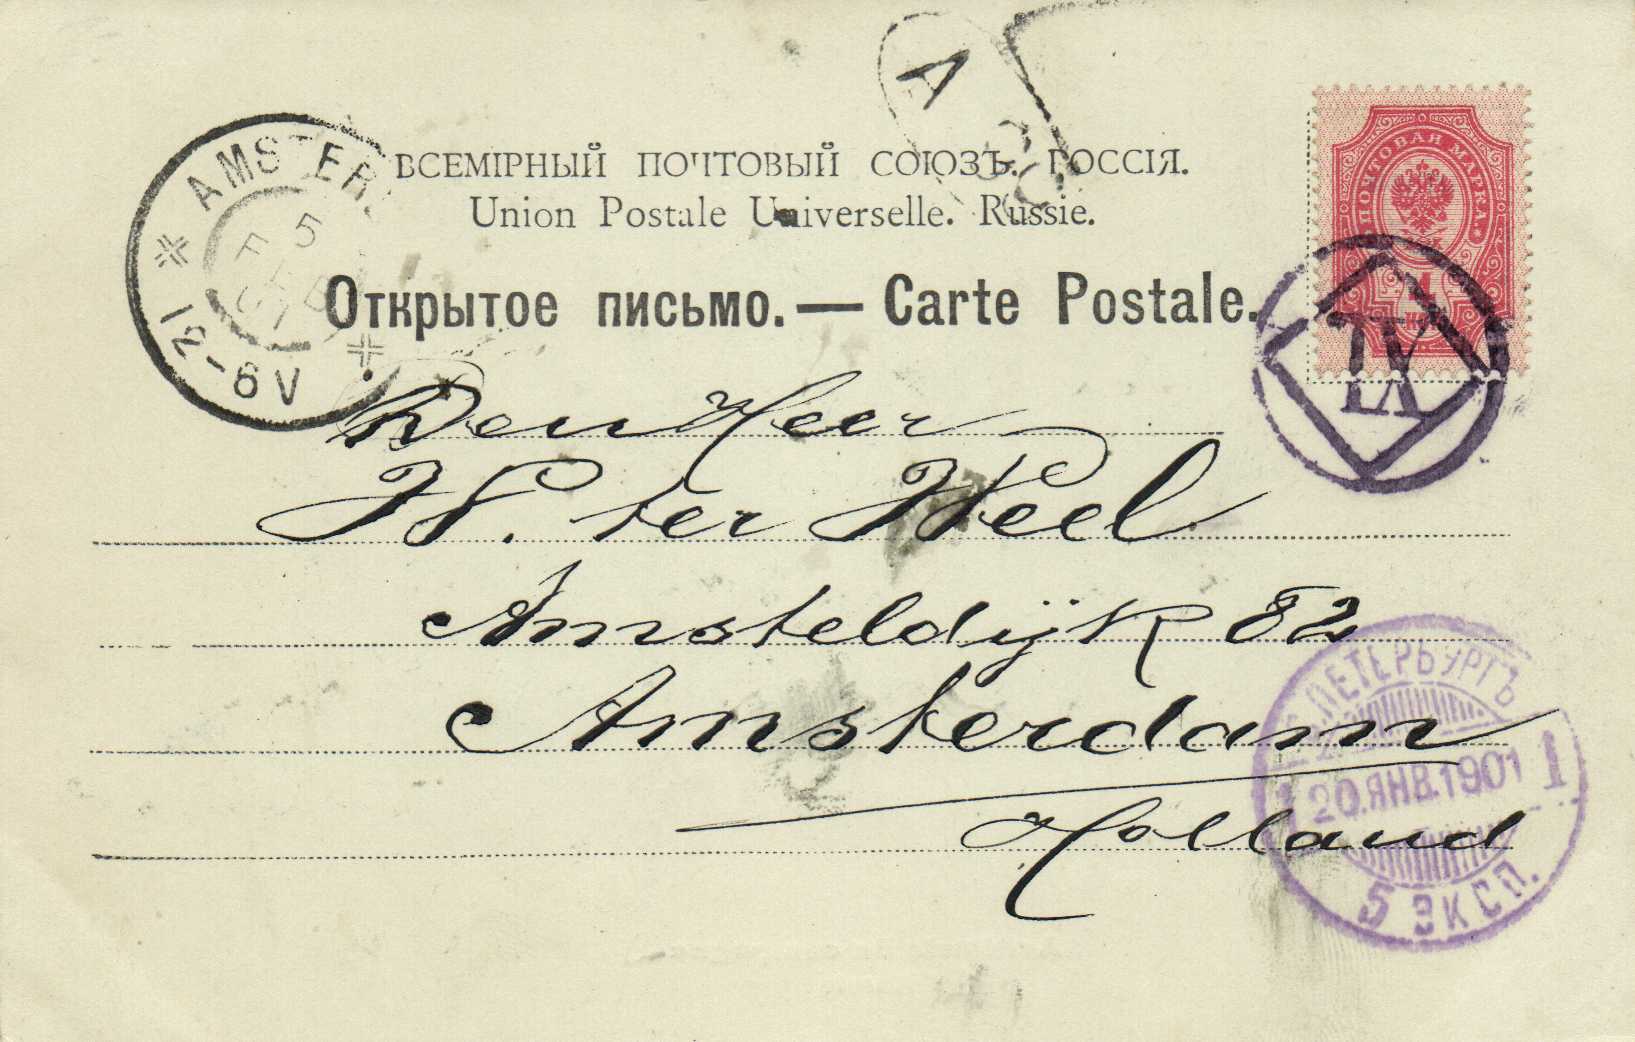 A
ВСЕМІРНЫЙ ПОЧТОВЫЙ СОЮЗЪ. РОССІЯ.
Union Postale Universelle. Russie.
Открытое письмо. — Carte Postale.
ПОЧТОВАЯ МАРКА
4
IX
AMSTER
5
FEB
01
12-6V
Den Heer
W. ter Weel
Amsteldijk 82
Amsterdam
Holland
С.ПЕТЕРБУРГЪ
1 20.ЯНВ.1901 1
5 ЭКСП.